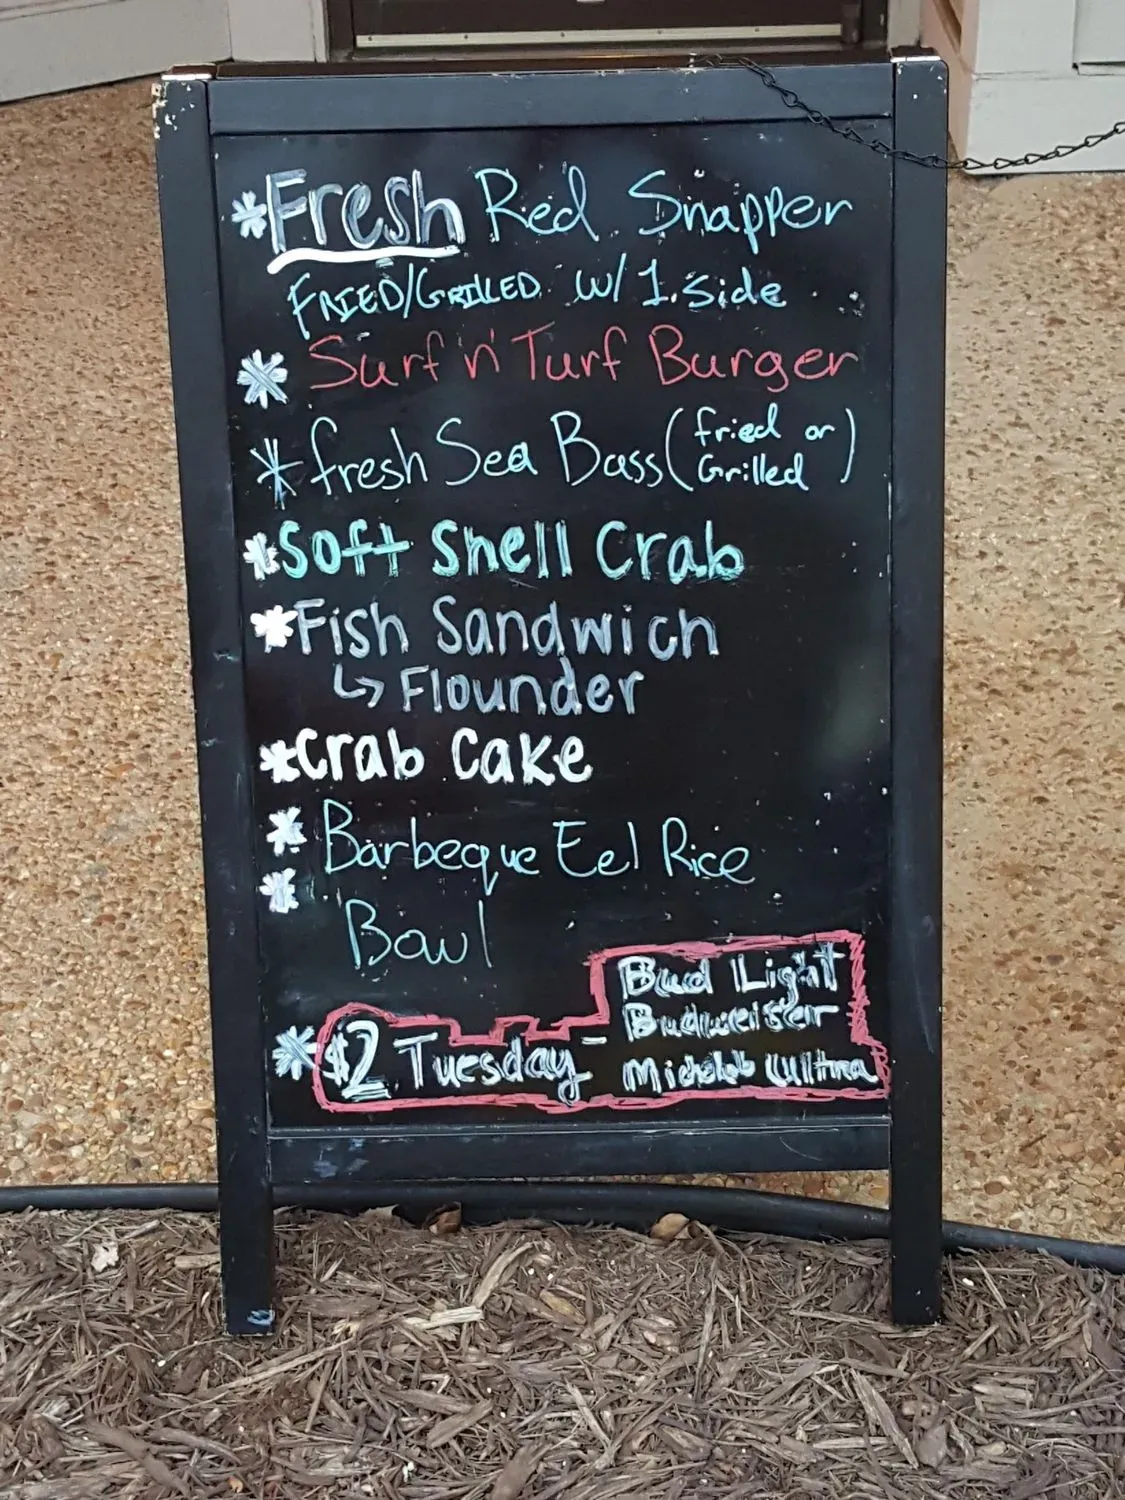 *Fresh Red Snapper
FRIED/GRILLED w/ 1 side
* Surf 'n' Turf Burger
* fresh Sea Bass (fried or Grilled)
*Soft Shell Crab
*Fish Sandwich
↳ Flounder
*Crab Cake
* Barbeque Eel Rice
* Bowl
* $2 Tuesday - Bud Light
Budweiser
Michelob Ultra